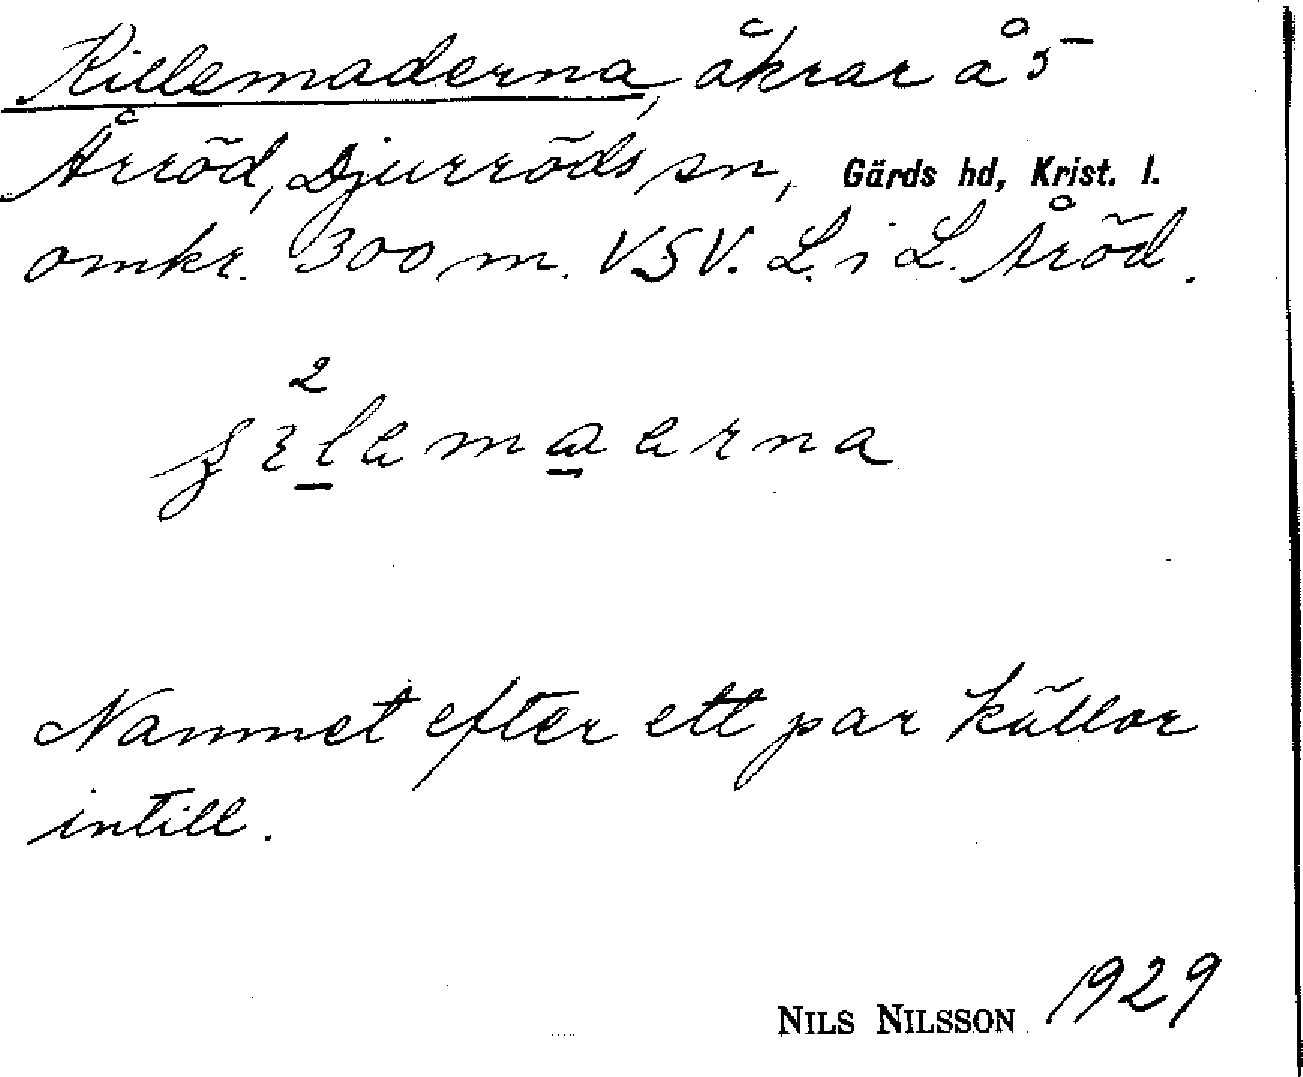 Killemaderna, åkrar å 5
Årröd, Djurröds sn, Gärds hd, Krist. l.
omkr. 300 m. VSV. L. i L. Åröd.
Nammet efter ett par källor
intill.
NILS NILSSON 1929